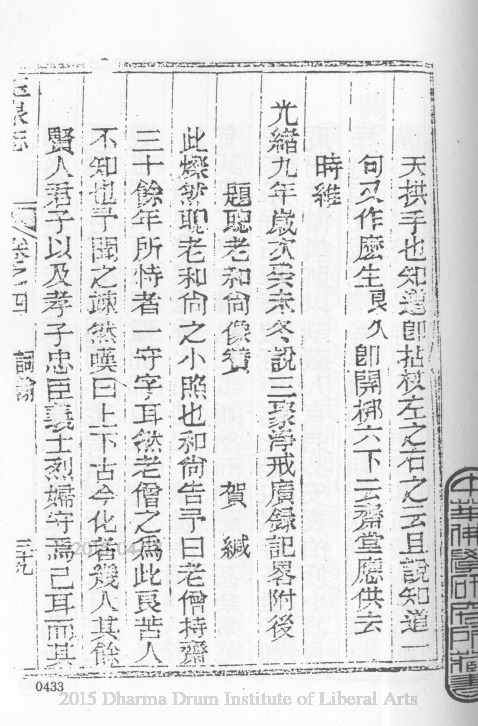 天拱手也知道卽拈杖左之右之云且說知道一
句又作麽生良久卽開梆六下云齋堂應供去
時維
光緒九年歲次癸未冬說三聚淨戒廣錄記畧附後
題聰老和尙像贊 賀緘
此燦然聰老和尙之小照也和尙吿予曰老僧持齋
三十餘年所恃者一守字耳然老僧之爲此良苦人
不知也予聞之竦然嘆曰上下古今化者幾人其餘
賢人君子以及孝子忠臣義士烈婦守焉已耳而其
卷之四 詞翰 三十九
中華佛學研究所藏書
0433
2015 Dharma Drum Institute of Liberal Arts